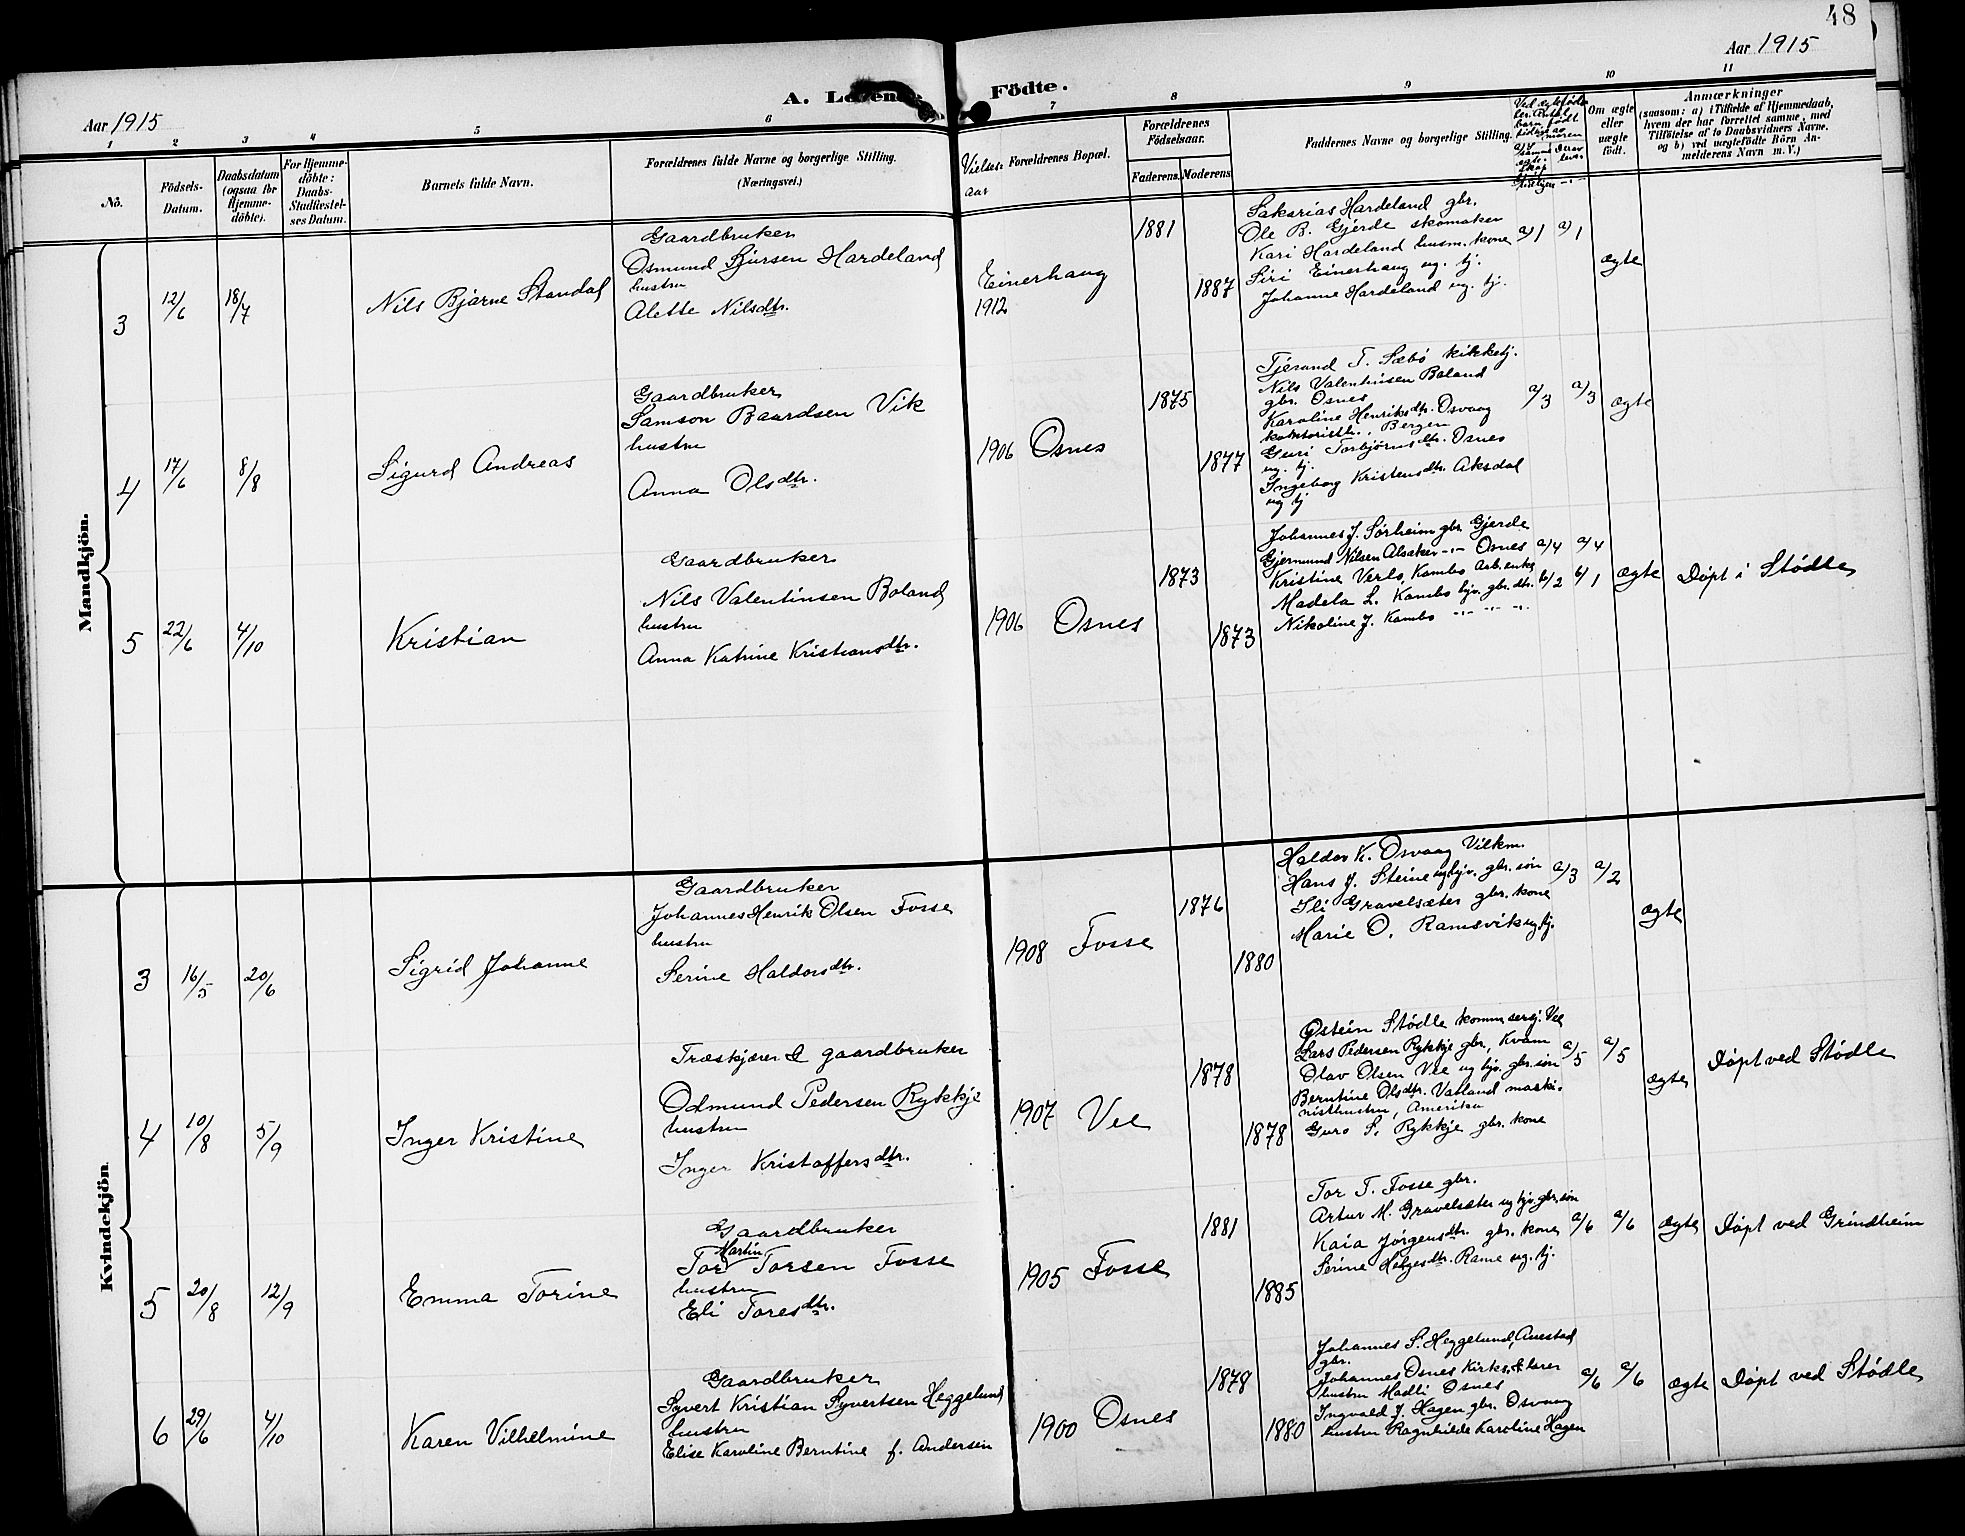 48
Aar 1915
Aar 1915
A. Levende
Födte.
1 2 3 4 5 6 7 8 9 10 11
No.
Födsels-
Datum.
Daabsdatum
(ogsaa for
Hjemme-
döbte).
For Hjemme-
döbte:
Daabs-
Stadfæstel-
ses Datum.
Barnets fulde Navn.
Forældrenes fulde Navne og borgerlige Stilling.
(Næringsvei.)
Vielses-
aar
Forældrenes Bopæl.
Forældrenes
Födselsaar.
Faderens.
Moderens.
Faddernes Navne og borgerlige Stilling.
Om ægte
eller
uægte
födt.
Anmærkninger
(saasom: a) i Tilfælde af Hjemmedaab,
hvem der har forrettet samme, med
Tilföielse af to Daabsvidners Navne,
og b) ved uægtefödte Börn An-
melderens Navn m. V.)
Mandkjön.
3
12/6
18/7
Nils Bjarne Standal
Gaardbruker
Osmund Sjursen Hardeland
hustru
Alette Nilsdtr.
Einerhaug
1912
1881
1887
Sakarias Hardeland gbr.
Ole B. Gjerde skomaker
Kari Hardeland husm. kone
Siri Einerhaug ug. tj.
Johanne Hardeland ug. tj.
a/1 a/1
ægte
4
17/6
8/8
Sigurd Andreas
Gaardbruker
Samson Baardsen Vik
hustru
Anna Olsdtr.
1906 Osnes
1875
1877
Tjerand T. Sæbö kikketj.
Nils Valentinsen Boland
gbr. Osnes
Karoline Henriksdtr. Osvaag
kontoristr., Bergen
Guri Torbjörnsdtr. Osnes
ug. tj.
Ingeborg Kristensdtr. Aksdal
ug tj
a/3 a/3
ægte
5
22/6
4/10
Kristian
Gaardbruker
Nils Valentinsen Boland
hustru
Anna Katrine Kristiansdtr.
1906 Osnes
1873
1873
Johannes J. Sörheim gbr. Gjerde
Gjermund Nilsen Alsaker -"- Osnes
Kristine Verlo, Kambo arb. enke
Madela L. Kambo hjv. gbr. dtr.
Nikoline J. Kambo -"- -"- -"-
a/4 a/4
b/2 b/1
ægte
Döpt i Stödle
Kvindekjön.
3
16/5
20/6
Sigrid Johanne
Gaardbruker
Johannes Henrik Olsen Fosse
hustru
Serine Haldorsdtr.
1908 Fosse
1876
1880
Haldor K. Osvaag Vilkm.
Hans J. Steine ug hjv. gbr. sön
Ili Gravelsæter gbr. kone
Marie O. Ramsvik ug tj.
a/3 a/2
ægte
4
10/8
5/9
Inger Kristine
Træskjærer & gaardbruker
Odmund Pedersen Rykkje
hustru
Inger Kristoffersdtr.
1907 Vee
1878
1878
Östein Stödle kommisersj. Vee
Lars Pedersen Rykkje gbr., Kvam
Olav Olsen Vee ug hjv. gbr. sön
Berntine Olsdtr. Vatland maski-
nisthustru, Amerika
Guro S. Rykkje gbr. kone
a/5 a/5
ægte
Döpt ved Stödle
5
20/8
12/9
Emma Torine
Gaardbruker
Martin
Tor Torsen Fosse
hustru
Eli Toresdtr.
1905 Fosse
1881
1885
Tor T. Fosse gbr.
Artur M. Gravelsæter ug hjv. gbr. sön
Kaia Jörgensdtr. gbr. kone
Serine Helgesdtr. Rame ug. tj.
a/6 a/6
ægte
Döpt ved Grindheim
6
29/6
4/10
Karen Vilhelmine
Gaardbruker
Syvert Kristian Syvertsen Heggelund
hustru
Elise Karoline Berntine f. Andersen
1900 Osnes
1878
1880
Johannes S. Heggelund, Auestad
gbr.
Johannes Osnes Kirks. & lærer
hustru Madli Osnes
Ingvald J. Hagen gbr. Osvaag
hustru Ragnhilde Karoline Hagen
a/6 a/6
ægte
Döpt ved Stödle